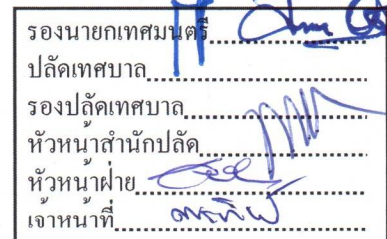 รองนายกเทศมนตรี
ปลัดเทศบาล
รองปลัดเทศบาล
หัวหน้าสำนักปลัด
หัวหน้าฝ่าย
เจ้าหน้าที่